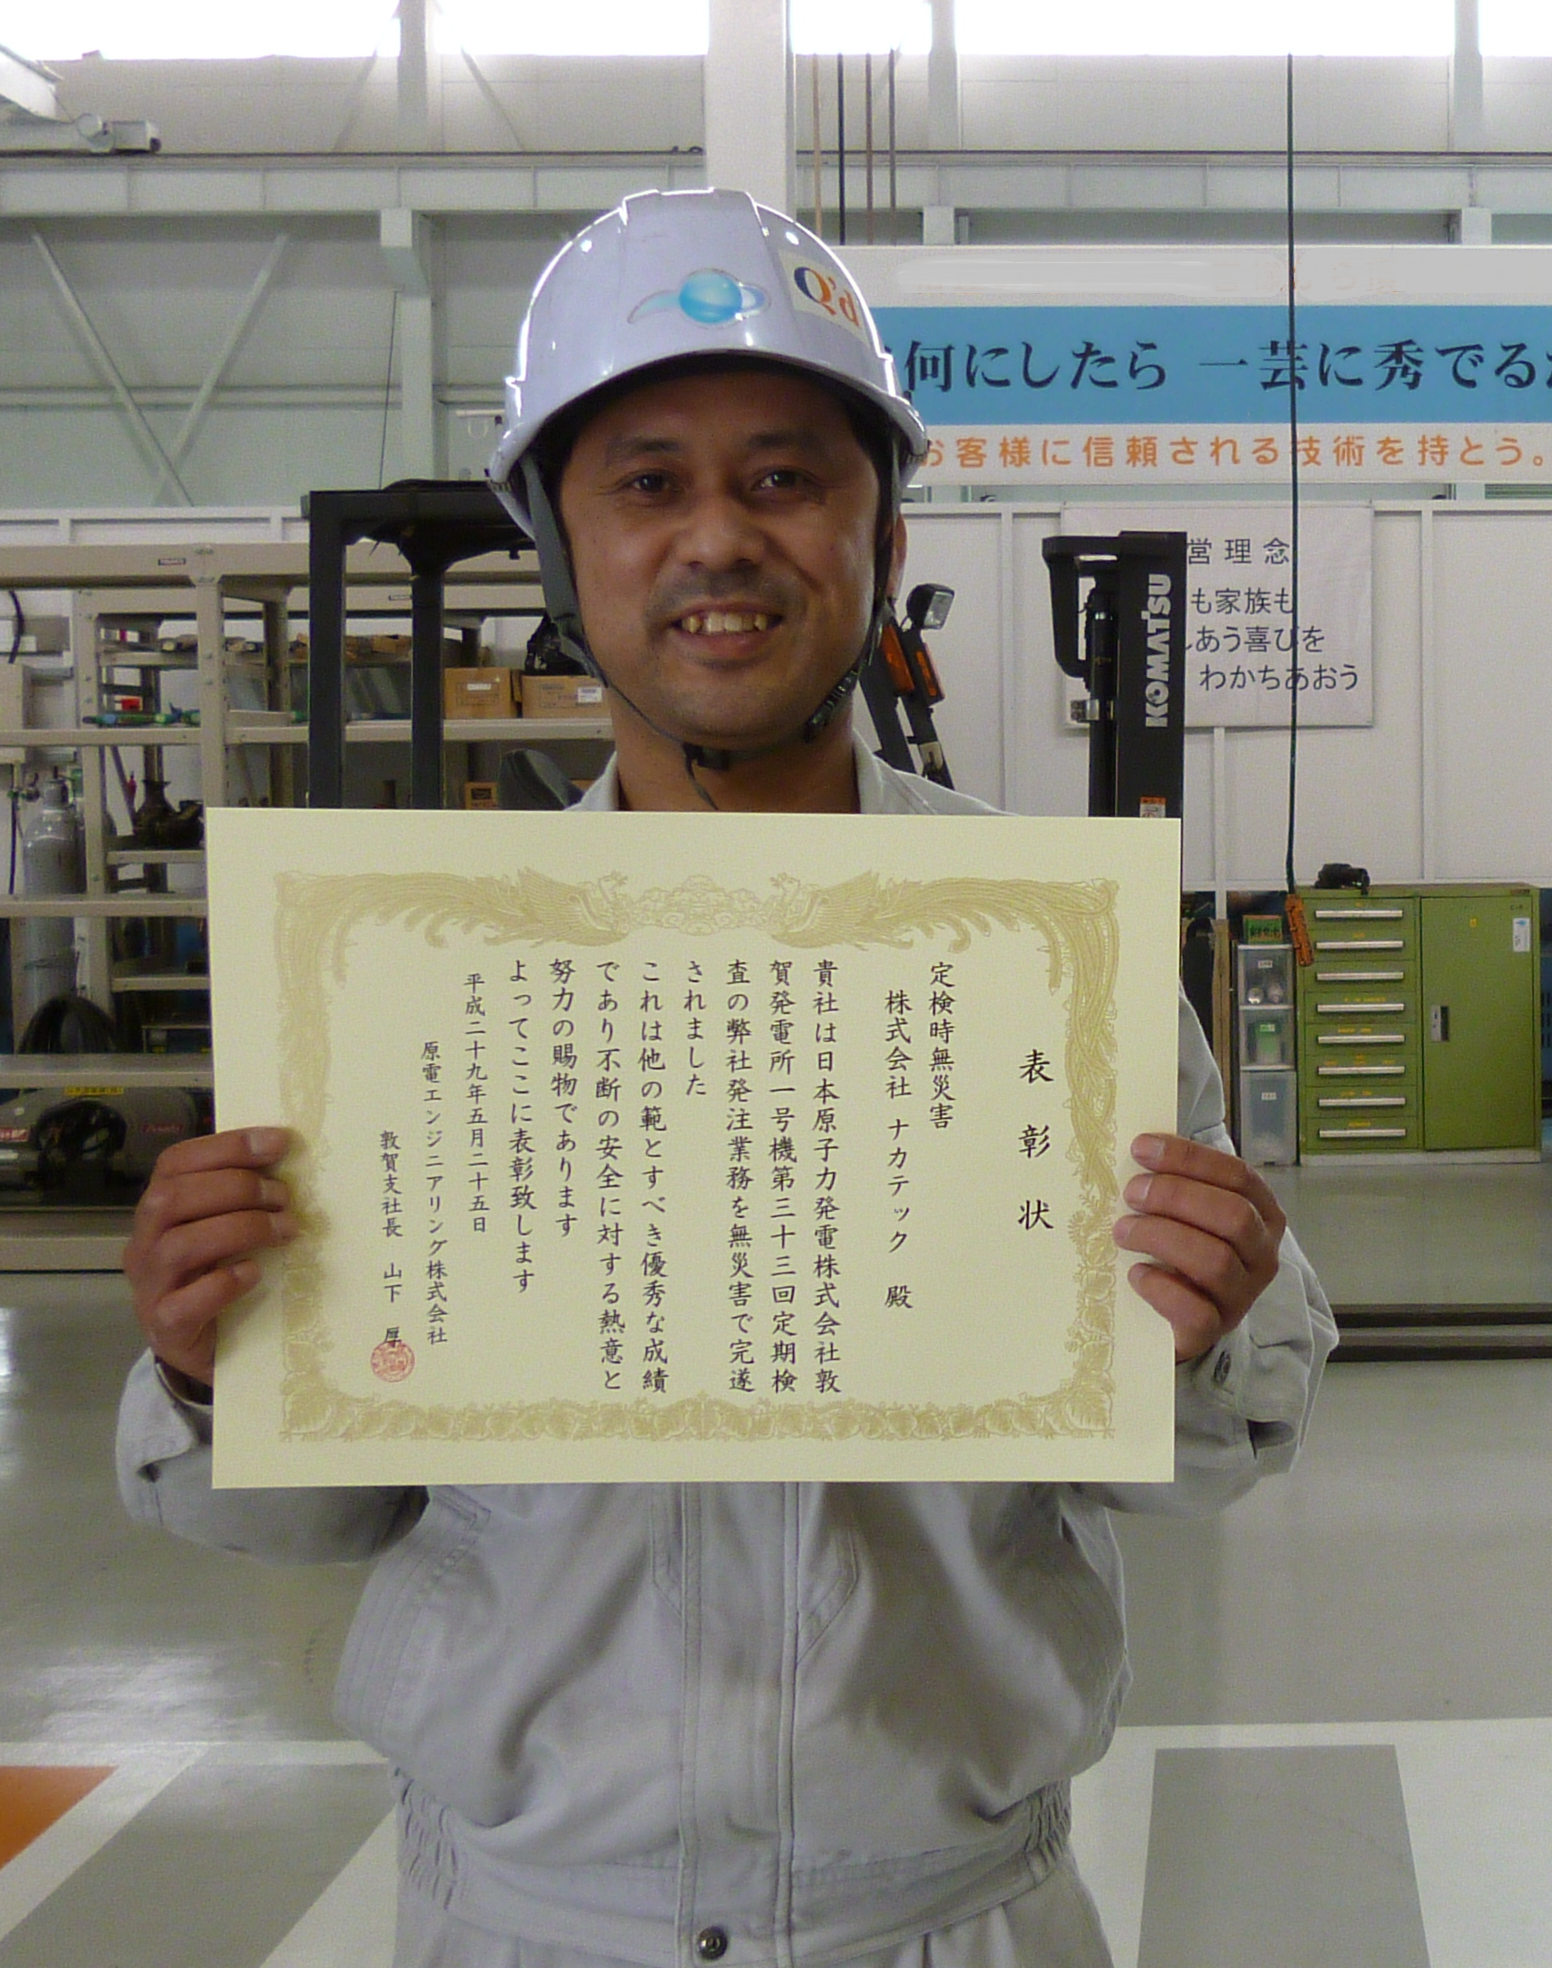 Q'd
何にしたら 一芸に秀でるか
お客様に信頼される技術を持とう。
営理念
も家族も
しあう喜びを
わかちあおう
KOMATSU
表彰状
定検時無災害
株式会社 ナカテック 殿
貴社は日本原子力発電株式会社敦
賀発電所一号機第三十三回定期検
査の弊社発注業務を無災害で完遂
されました
これは他の範とすべき優秀な成績
であり不断の安全に対する熱意と
努力の賜物であります
よってここに表彰致します
平成二十九年五月二十五日
原電エンジニアリング株式会社
敦賀支社長 山下 厚